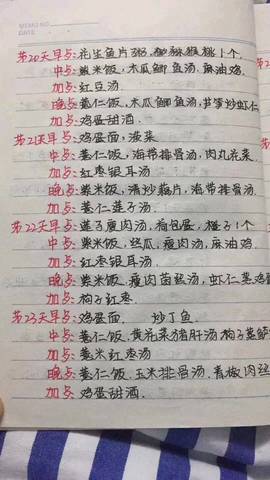 第20天早点:花生鱼片粥,猕猴桃1个.
中点:紫米饭,木瓜鲫鱼汤,麻油鸡.
加点:红豆汤.
晚点:薏仁饭,木瓜鲫鱼汤,芦笋炒虾仁
加点:鸡蛋甜酒.
第21天早点:鸡蛋面,菠菜
中点:薏仁饭,海带排骨汤,肉丸花菜.
加点:红枣银耳汤
晚点:紫米饭,清炒藕片,海带排骨汤.
加点:薏仁莲子汤.
第22天早点:莲子瘦肉汤,荷包蛋,橙子1个
中点:紫米饭,丝瓜,瘦肉汤,麻油鸡.
加点:红枣银耳汤.
晚点:紫米饭,瘦肉菌菇汤,虾仁蒸鸡蛋
加点:枸子红枣.
第23天早点:鸡蛋面, 炒丁鱼.
中点:薏仁饭,黄花菜猪肝汤,枸子蒸
加点:薏米红枣汤
晚点:薏仁饭,玉米排骨汤,青椒肉丝
加点:鸡蛋甜酒.